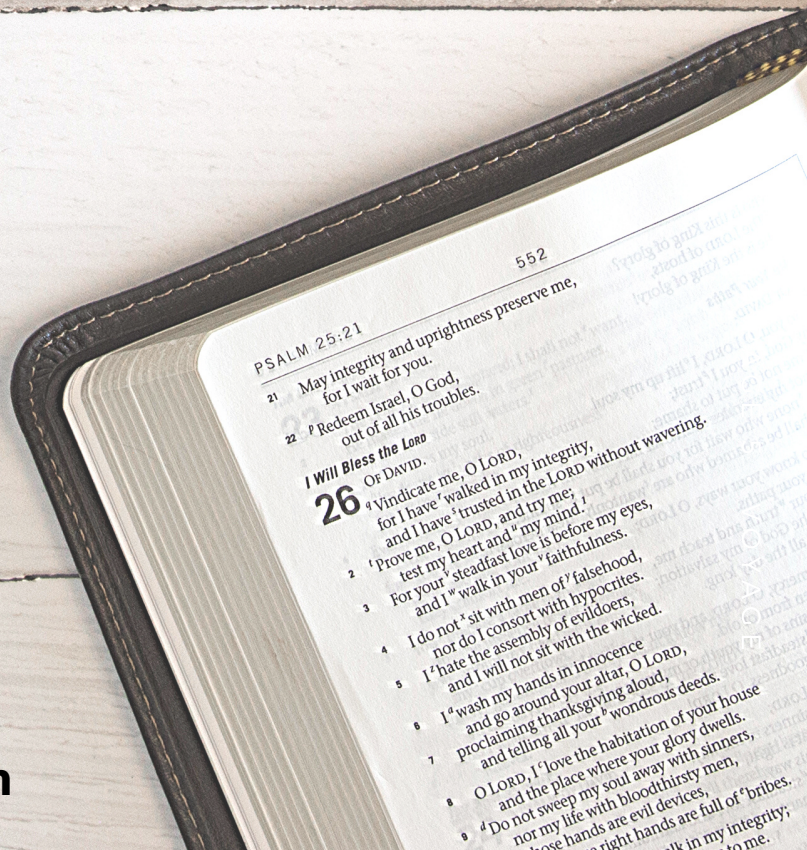 552
PSALM 25:21
21 May integrity and uprightness preserve me,
for I wait for you.
22 p Redeem Israel, O God,
out of all his troubles.
I Will Bless the LORD
26 OF DAVID.
q Vindicate me, O LORD,
for I have r walked in my integrity,
and I have s trusted in the LORD without wavering.
2 t Prove me, O LORD, and try me;
test my heart and u my mind.
3 For your v steadfast love is before my eyes,
and I w walk in your v faithfulness.
4 I do not x sit with men of y falsehood,
nor do I consort with hypocrites.
5 I z hate the assembly of evildoers,
and I will not sit with the wicked.
6 I a wash my hands in innocence
and go around your altar, O LORD,
7 proclaiming thanksgiving aloud,
and telling all your b wondrous deeds.
8 O LORD, I c love the habitation of your house
and the place where your glory dwells.
9 d Do not sweep my soul away with sinners,
nor my life with bloodthirsty men,
hands are evil devices,
right hands are full of e bribes.
in my integrity;
to me.
n